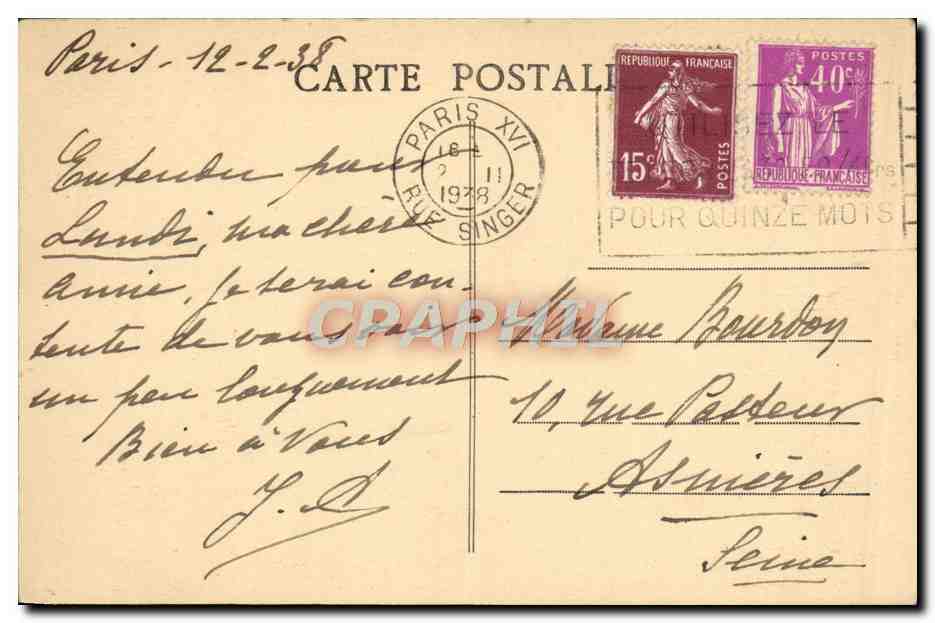 Paris - 12-2-38
CARTE POSTALE
PARIS XVI
1938
RUE SINGER
REPUBLIQUE FRANÇAISE
15c
POSTES
POSTES
40c
REPUBLIQUE-FRANÇAISE
POUR QUINZE MOTS
Entendu pour
Lundi, ma chere
Amie, je serai con-
tente de vous voir
un peu longuement
Bien à Vous
J. A
CPAPHIL
Madame Bourdon
10, rue Pasteur
Asnières
Seine